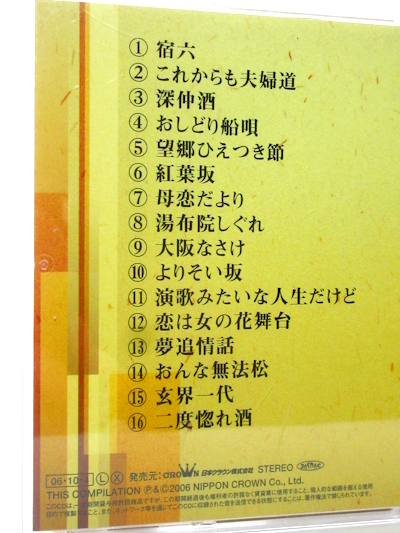 ① 宿六
② これからも夫婦道
③ 深仲酒
④ おしどり船唄
⑤ 望郷ひえつき節
⑥ 紅葉坂
⑦ 母恋だより
⑧ 湯布院しぐれ
⑨ 大阪なさけ
⑩ よりそい坂
⑪ 演歌みたいな人生だけど
⑫ 恋は女の花舞台
⑬ 夢追情話
⑭ おんな無法松
⑮ 玄界一代
⑯ 二度惚れ酒
06・10 L X 発売元: CROWN 日本クラウン株式会社 STEREO
THIS COMPILATION ℗&©2006 NIPPON CROWN Co., Ltd.